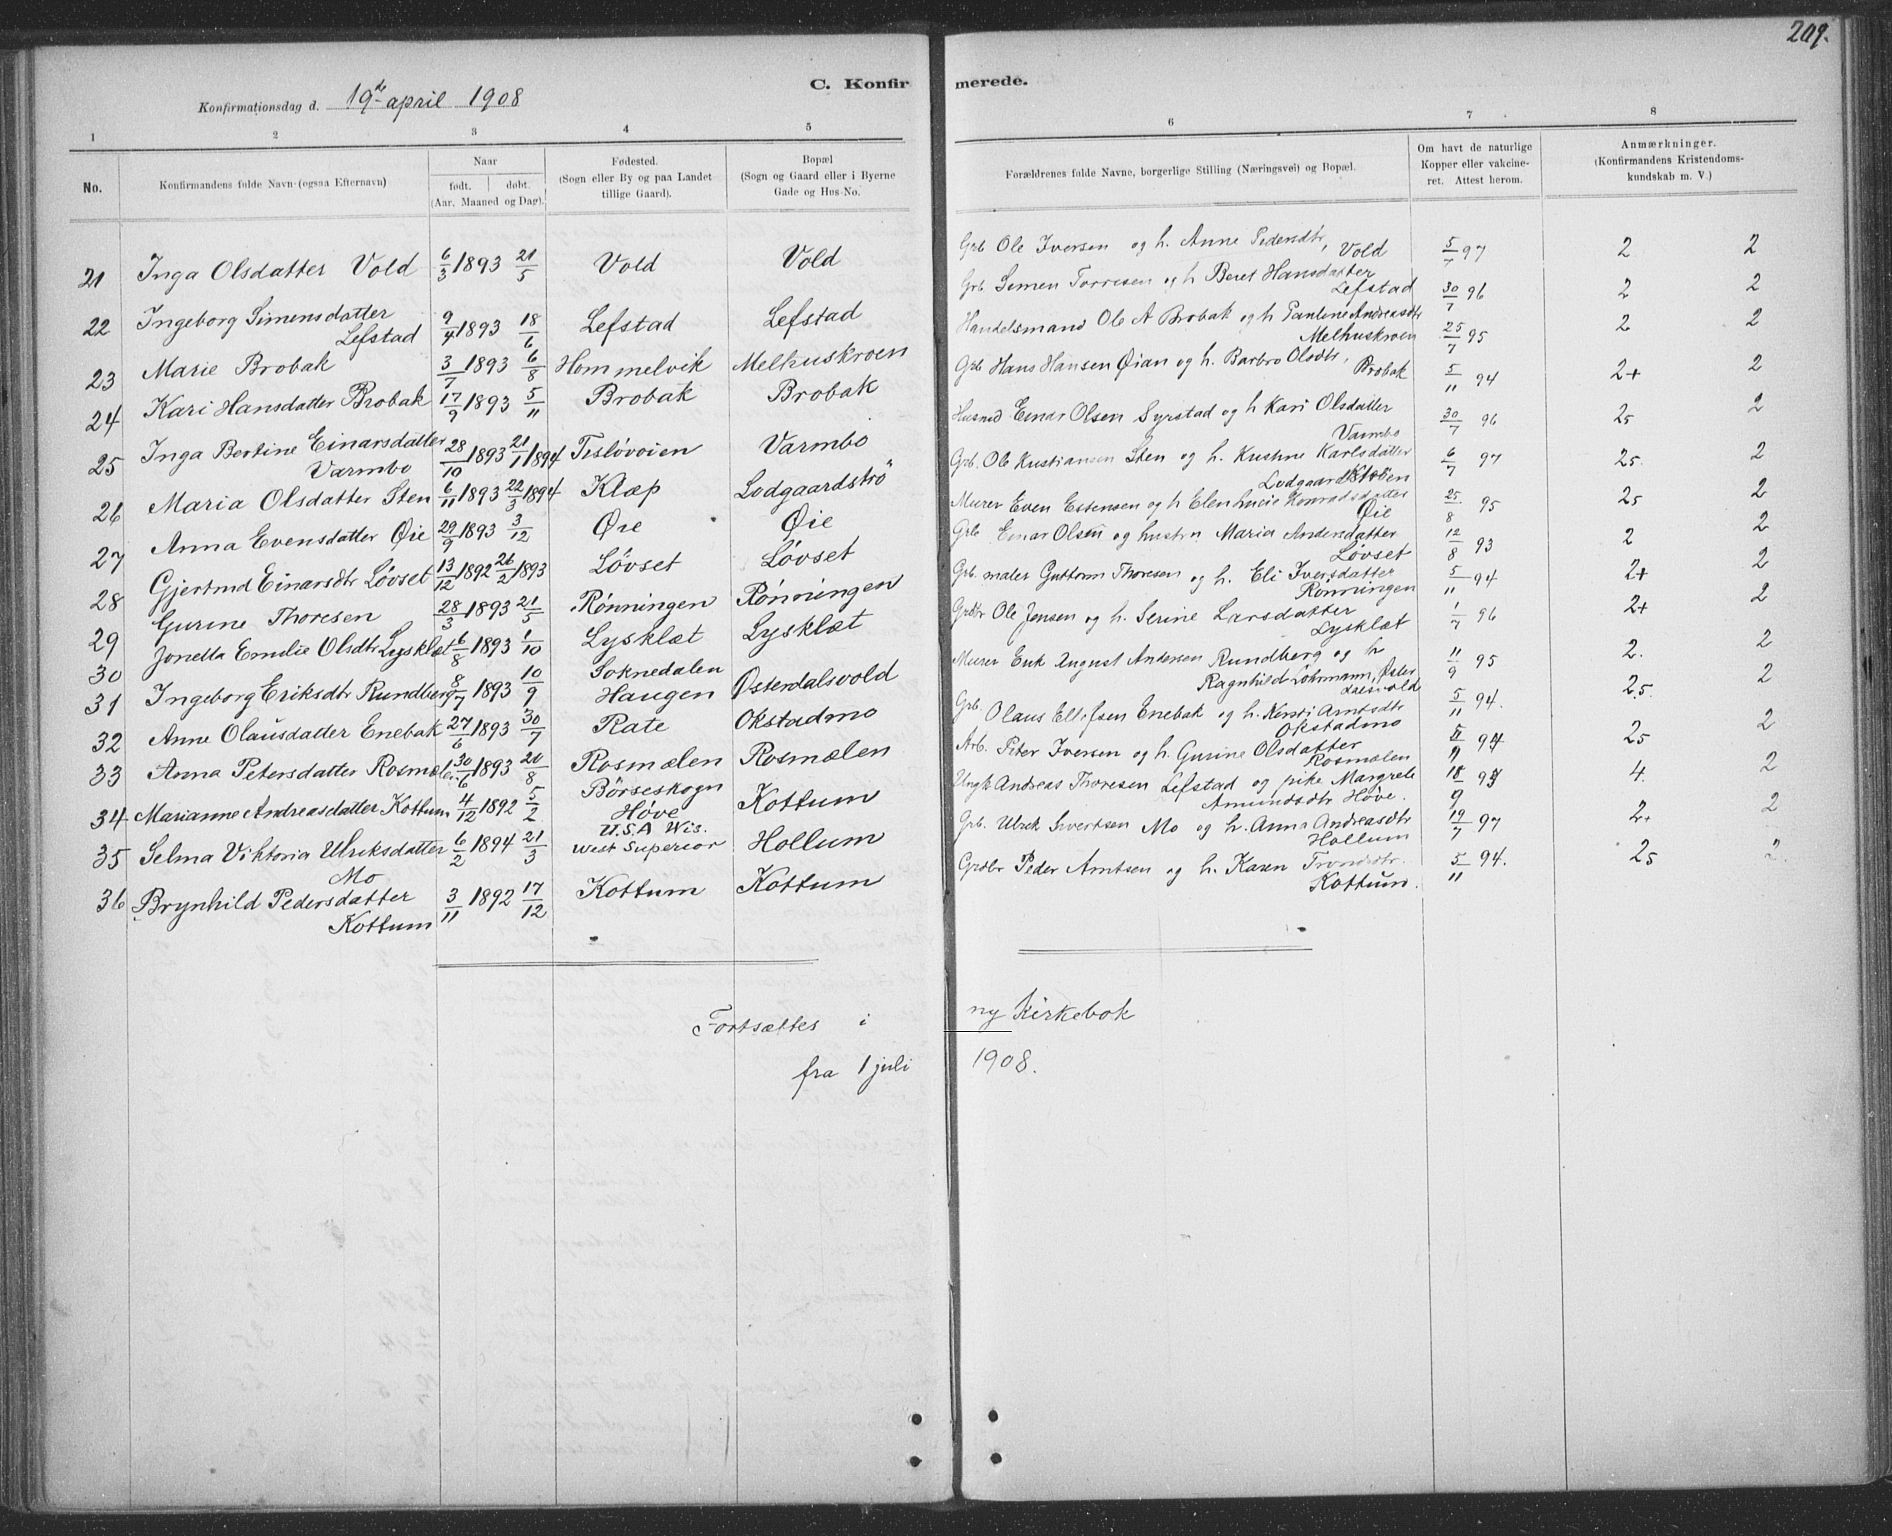 209.
C. Konfirmerede.
Konfirmationsdag d. 19de april 1908
1 2 3 4 5 6 7 8
No. | Konfirmandens fulde Navn (ogsaa Efternavn) | Naar født. døbt. (Aar, Maaned og Dag). | Fødested. (Sogn eller By og paa Landet tillige Gaard). | Bopæl (Sogn og Gaard eller i Byerne Gade og Hus-No. | Forældrenes fulde Navne, borgerlige Stilling (Næringsvei) og Bopæl. | Om havt de naturlige Kopper eller vakcineret. Attest herom. | Anmærkninger. (Konfirmandens Kristendomskundskab m. V.)
21 Inga Olsdatter Vold 6/3 1893 21/5 Vold Vold Grb Ole Iversen og h. Anne Pedersdtr, Vold 5/7 97 2 2
22 Ingeborg Simensdatter Lefstad 9/4 1893 18/6 Lefstad Lefstad Grb. Simen Torresen og h Beret Hansdatter Lefstad 30/7 96 2 2
23 Marie Brobak 3/7 1893 6/8 Hommelvik Melhuskroen Handelsmand Ole A Brobak og h Pauline Andreasdtr Melhuskroen 25/7 95 2 2
24 Kari Hansdatter Brobak 17/9 1893 5/11 Brobak Brobak Grb Hans Hansen Øian og h. Barbro Olsdtr, Brobak 5/11 94 2+ 2
25 Inga Bertine Einarsdatter Varmbo 28/10 1893 21/1 1894 Varmbo Husmd Einar Olsen Syrstad og h Kari Olsdatter Varmbo 30/7 96 25 2
26 Maria Olsdatter Sten 6/11 1893 22/3 1894 Klæp Lodgaardstrø Grb. Ole Kristiansen Sten og h. Kristine Karlsdatter 6/7 97 25. 2
27 Anna Evensdatter Øie 29/9 1893 3/12 Øie Øie Murer Even Estensen og h Konradsdatter Øie 25/8 95 25 2
28 Gjertrud Einarsdtr Løvset 13/12 1892 26/2 1893 Løvset Løvset Grb Einar Olsen og hustru Maria Andersdatter Løvset 12/8 93 2 2
29 Gurine Thoresen 28/3 1893 21/5 Rønningen Rønningen Grb. maler Guttorm Thoresen og h. Eli Iversdatter Rønningen 5/11 94 2+ 2
30 Jonetta Emilie Olsdtr Lysklæt 6/8 1893 1/10 Lysklæt Lysklæt Grdbr Ole Jensen og h. Serine Larsdatter Lysklæt 1/7 96 2+ 2
31 Ingeborg Eriksdtr Rundberg 8/7 1893 10/9 Soknedalen Haugen Østerdalsvold Murer Erik August Andersen Rundberg og h Ragnhild Løhrmann, Øster 11/9 95 2. 2
32 Anne Olausdatter Enebak 27/6 1893 30/7 Rate Okstadmo Grb. Olaus Ellefsen Enebak og h. Kersti Arntsdtr Okstadmo 5/11 94. 2.5. 2
33 Anna Petersdatter Rosmælen 30/6 1893 20/8 Rosmælen Rosmælen Arb. Peter Iversen og h. Gurine Olsdatter Rosmælen 94 25 2
34 Marianne Andreasdatter Kottum 4/12 1892 5/2 Børseskogn Høve Kottum Ungk Andreas Thoresen Lefstad og pike Margrete Amundsdtr Høve. 18/9 4. 2
35 Selma Viktoria Ulriksdatter Mo 6/2 1894 21/3 U.S.A Wis. West Superior Hollum Grb. Ulrik Sivertsen Mo og h. Anna Andreasdtr Hollum 19/7 97 2+ 2
36 Brynhild Pedersdatter Kottum 3/11 1892 17/12 Kottum Kottum Grdbr Peder Arntsen og h. Karen Trondsdtr. Kottum. 5/11 94. 25 2.
Fortsættes i ny Kirkebok
fra 1 juli 1908.